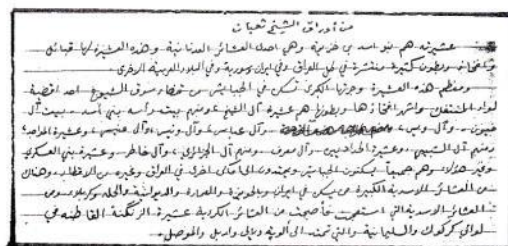 من أوراق الشيخ ثعبان
عشيرته هم بنو اسد بن خزيمة وهي احدى العشائر العدنانية وهذه العشيرة لها قبائل
وافخاذ وبطون كثيرة ومنتشرة في كل العراق وفي ايران وسورية وفي البلاد العربية الاخرى.
ومعظم هذه العشيرة وجزئها الكبرى تسكن في الجبايش من وسوق الشيوخ احد اقضية
لواء المنتفك واشهر افخاذها وبطونها هم عشيرة آل الشيخ ومنهم بيت رأس بني أسد وبيت آل
وآل ويس وآل عباس وآل ونيس وآل عنيسي وعشيرة
ومنهم آل الشبيب وعشيرة الحداديين وآل معرف ومنهم آل الجزائري وآل خاطر وعشيرة بني العسكري
وغير هؤلاء وهم جميعاً يسكنون الجبايش ويمتدون الى اماكن اخرى في العراق وغيره من الاقطار وهناك
من العشائر الاسدية الكبيرة من يسكن في ايران والحويزة والعمارة والديوانية والحلة وكربلاء ومن
العشائر الاسدية التي فأصبحت من العشائر الكردية عشيرة الزنكنة القاطنة في
لوائي كركوك والسليمانية والتي تمتد الى ألوية ديالى واربل والموصل.